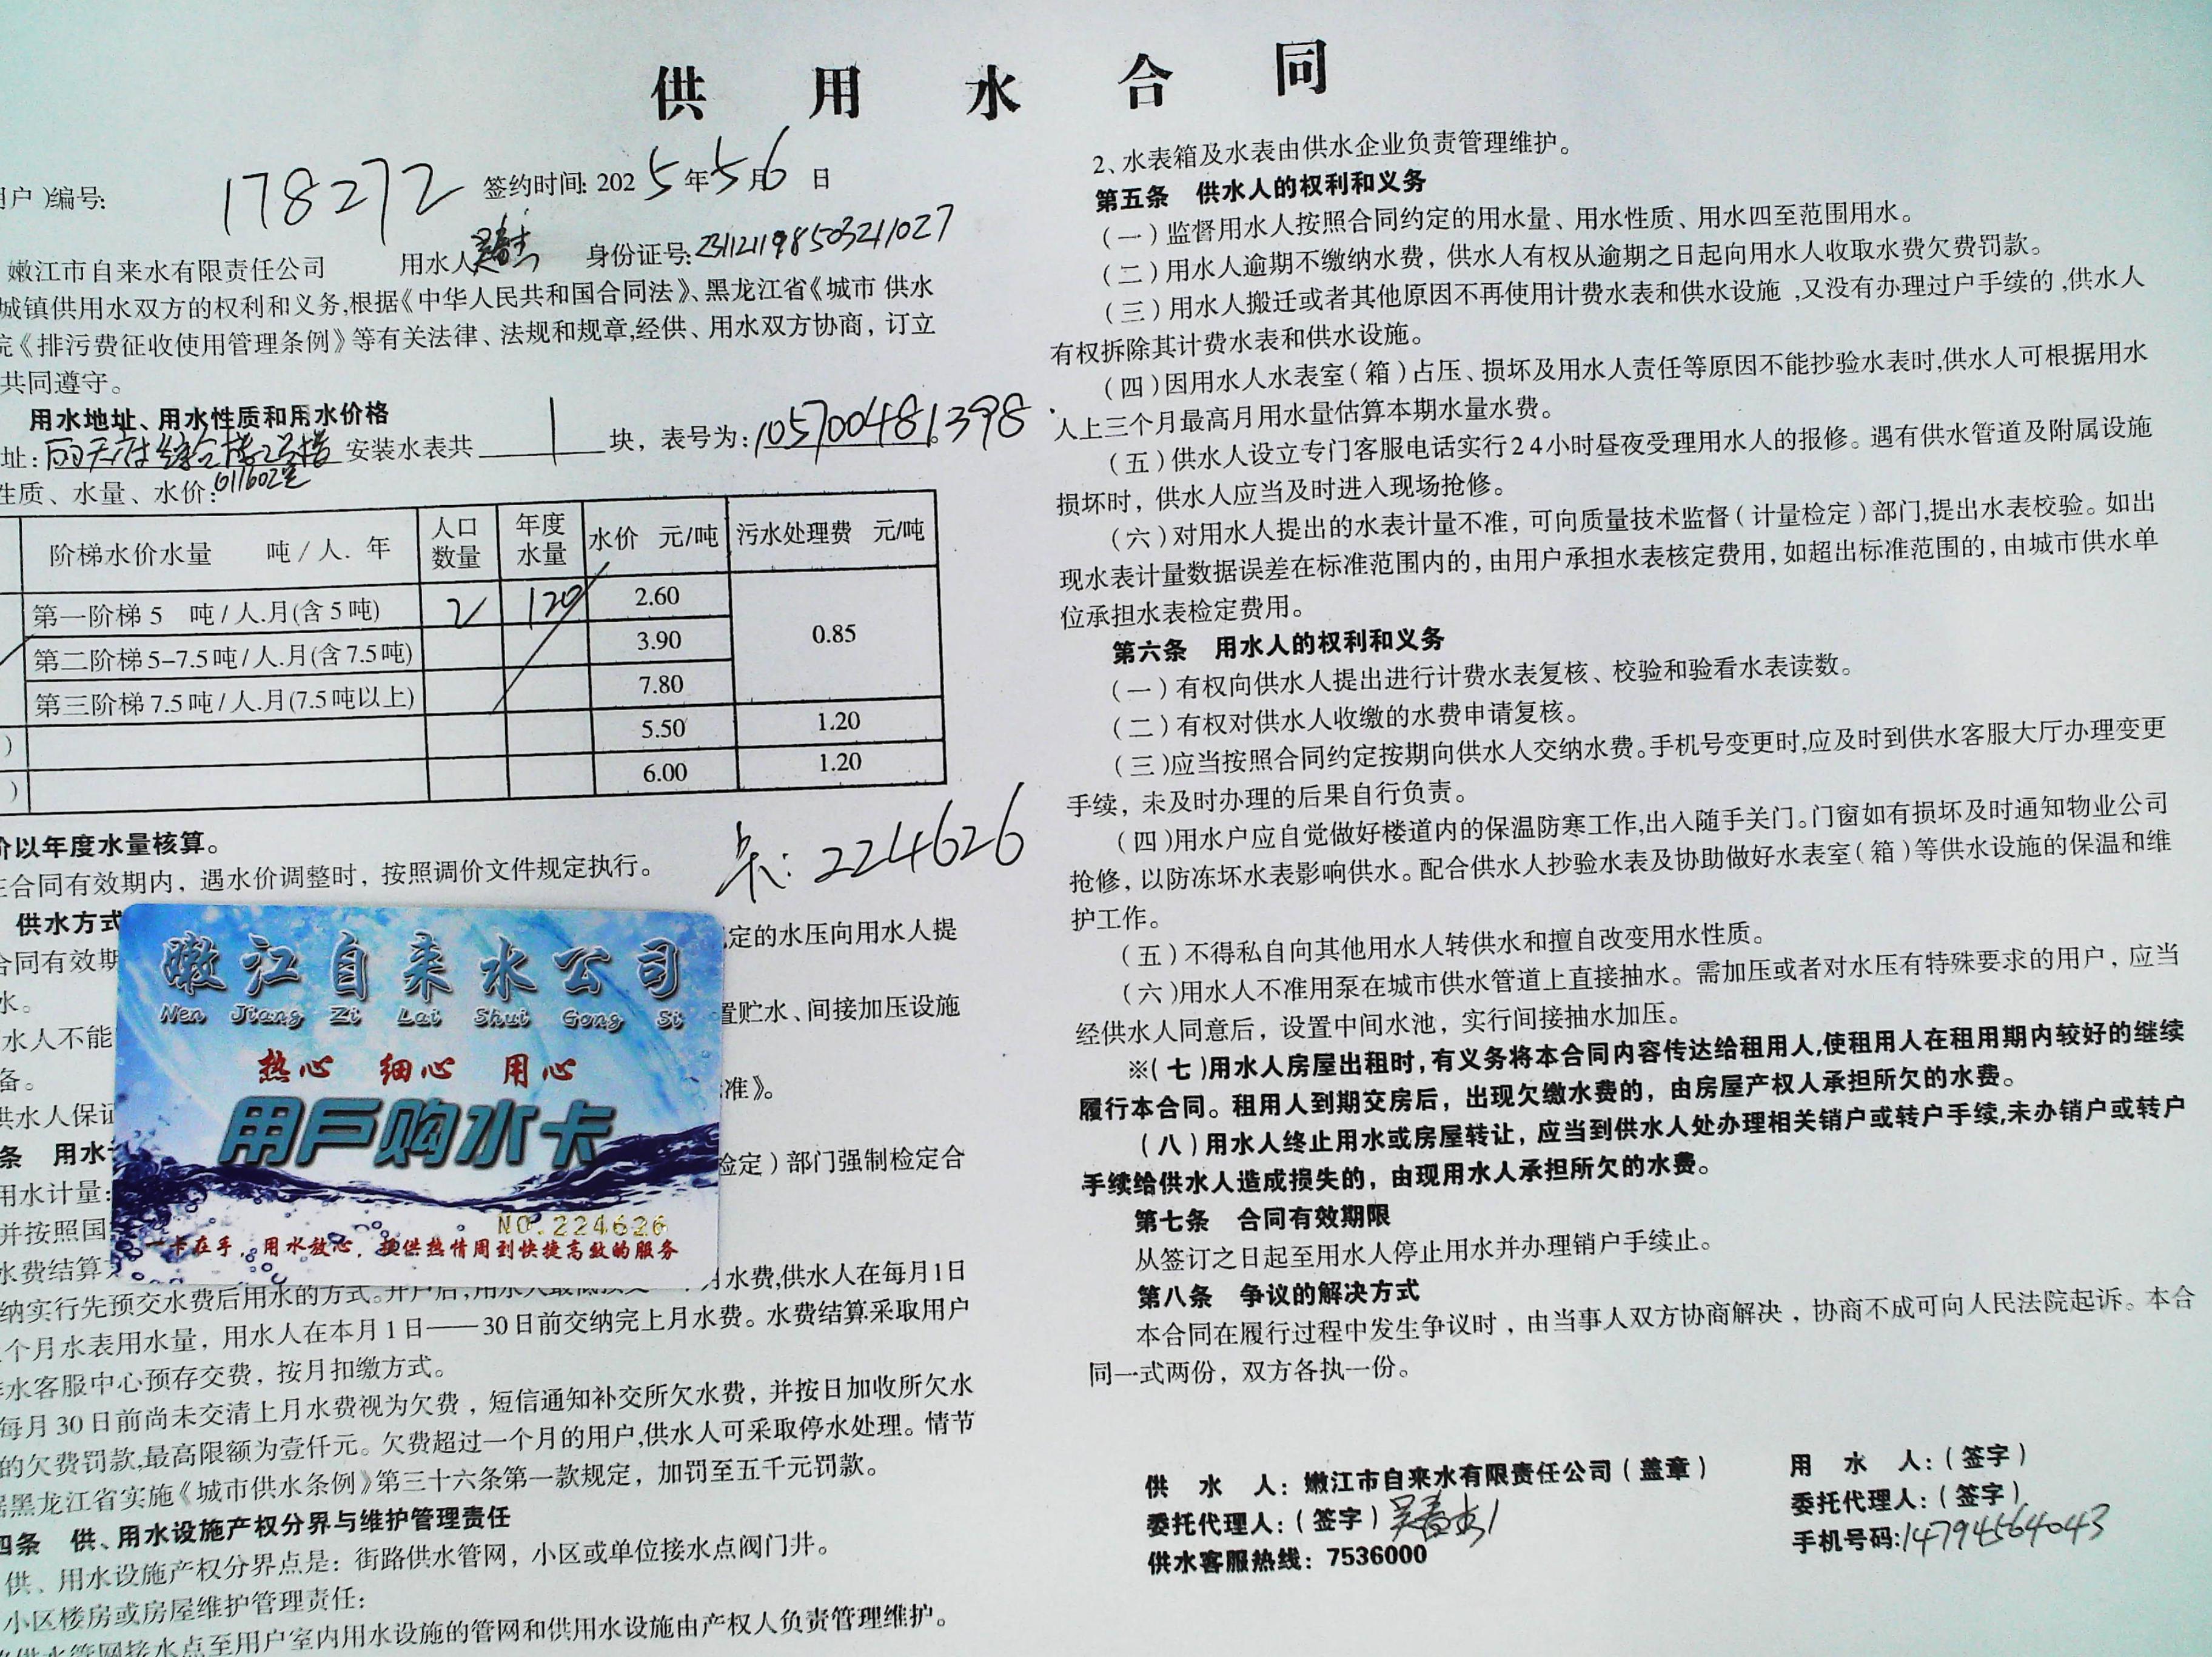 供 用 水 合 同
户)编号: 178272 签约时间: 2025年5月6日
嫩江市自来水有限责任公司 用水人 身份证号:231121198503211027
城镇供用水双方的权利和义务,根据《中华人民共和国合同法》、黑龙江省《城市 供水
院《排污费征收使用管理条例》等有关法律、法规和规章,经供、用水双方协商，订立
共同遵守。
用水地址、用水性质和用水价格
址: 综合楼2号楼 安装水表共 1 块，表号为: 105700481398
性质、水量、水价: 011602室
阶梯水价水量 吨/人.年 人口数量 年度水量 水价 元/吨 污水处理费 元/吨
第一阶梯 5 吨/人.月(含5吨) 2 120 2.60 0.85
第二阶梯 5-7.5吨/人.月(含7.5吨) 3.90
第三阶梯 7.5吨/人.月(7.5吨以上) 7.80
) 5.50 1.20
) 6.00 1.20
价以年度水量核算。
在合同有效期内，遇水价调整时，按照调价文件规定执行。
卡: 224626
供水方式
定的水压向用水人提
合同有效期
水。
置贮水、间接加压设施
水人不能
备。
准》。
供水人保证
条 用水
检定）部门强制检定合
用水计量:
并按照国
水费结算
嫩江自来水公司
Nen Jiang Zi Lai Shui Gong Si
热心 细心 用心
用户购水卡
NO.224626
一卡在手，用水放心，提供热情周到快捷高效的服务
纳实行先预交水费后用水的方式。开户后,用水人最低预交 月水费,供水人在每月1日
个月水表用水量，用水人在本月1日——30日前交纳完上月水费。水费结算采取用户
水客服中心预存交费，按月扣缴方式。
每月30日前尚未交清上月水费视为欠费，短信通知补交所欠水费，并按日加收所欠水
的欠费罚款,最高限额为壹仟元。欠费超过一个月的用户,供水人可采取停水处理。情节
据黑龙江省实施《城市供水条例》第三十六条第一款规定，加罚至五千元罚款。
四条 供、用水设施产权分界与维护管理责任
供、用水设施产权分界点是：街路供水管网，小区或单位接水点阀门井。
小区楼房或房屋维护管理责任:
供水管网接水点至用户室内用水设施的管网和供用水设施由产权人负责管理维护。
2、水表箱及水表由供水企业负责管理维护。
第五条 供水人的权利和义务
（一）监督用水人按照合同约定的用水量、用水性质、用水四至范围用水。
（二）用水人逾期不缴纳水费，供水人有权从逾期之日起向用水人收取水费欠费罚款。
（三）用水人搬迁或者其他原因不再使用计费水表和供水设施,又没有办理过户手续的,供水人
有权拆除其计费水表和供水设施。
（四）因用水人水表室（箱）占压、损坏及用水人责任等原因不能抄验水表时,供水人可根据用水
人上三个月最高月用水量估算本期水量水费。
（五）供水人设立专门客服电话实行24小时昼夜受理用水人的报修。遇有供水管道及附属设施
损坏时，供水人应当及时进入现场抢修。
（六）对用水人提出的水表计量不准，可向质量技术监督（计量检定）部门,提出水表校验。如出
现水表计量数据误差在标准范围内的，由用户承担水表核定费用，如超出标准范围的，由城市供水单
位承担水表检定费用。
第六条 用水人的权利和义务
（一）有权向供水人提出进行计费水表复核、校验和验看水表读数。
（二）有权对供水人收缴的水费申请复核。
（三)应当按照合同约定按期向供水人交纳水费。手机号变更时,应及时到供水客服大厅办理变更
手续，未及时办理的后果自行负责。
（四)用水户应自觉做好楼道内的保温防寒工作,出入随手关门。门窗如有损坏及时通知物业公司
抢修，以防冻坏水表影响供水。配合供水人抄验水表及协助做好水表室（箱）等供水设施的保温和维
护工作。
（五）不得私自向其他用水人转供水和擅自改变用水性质。
（六)用水人不准用泵在城市供水管道上直接抽水。需加压或者对水压有特殊要求的用户，应当
经供水人同意后，设置中间水池，实行间接抽水加压。
※(七)用水人房屋出租时,有义务将本合同内容传达给租用人,使租用人在租用期内较好的继续
履行本合同。租用人到期交房后，出现欠缴水费的，由房屋产权人承担所欠的水费。
（八）用水人终止用水或房屋转让，应当到供水人处办理相关销户或转户手续,未办销户或转户
手续给供水人造成损失的，由现用水人承担所欠的水费。
第七条 合同有效期限
从签订之日起至用水人停止用水并办理销户手续止。
第八条 争议的解决方式
本合同在履行过程中发生争议时，由当事人双方协商解决，协商不成可向人民法院起诉。本合
同一式两份，双方各执一份。
供 水 人：嫩江市自来水有限责任公司（盖章） 用 水 人：（签字）
委托代理人：（签字） 委托代理人：（签字）
供水客服热线：7536000 手机号码:14794564043